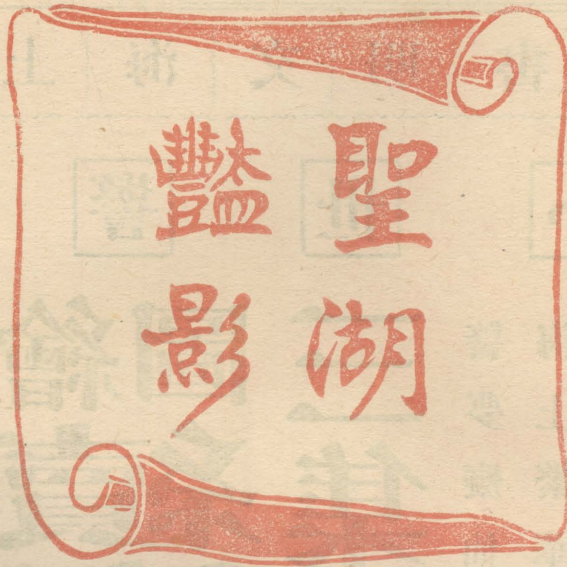 聖湖
豔影